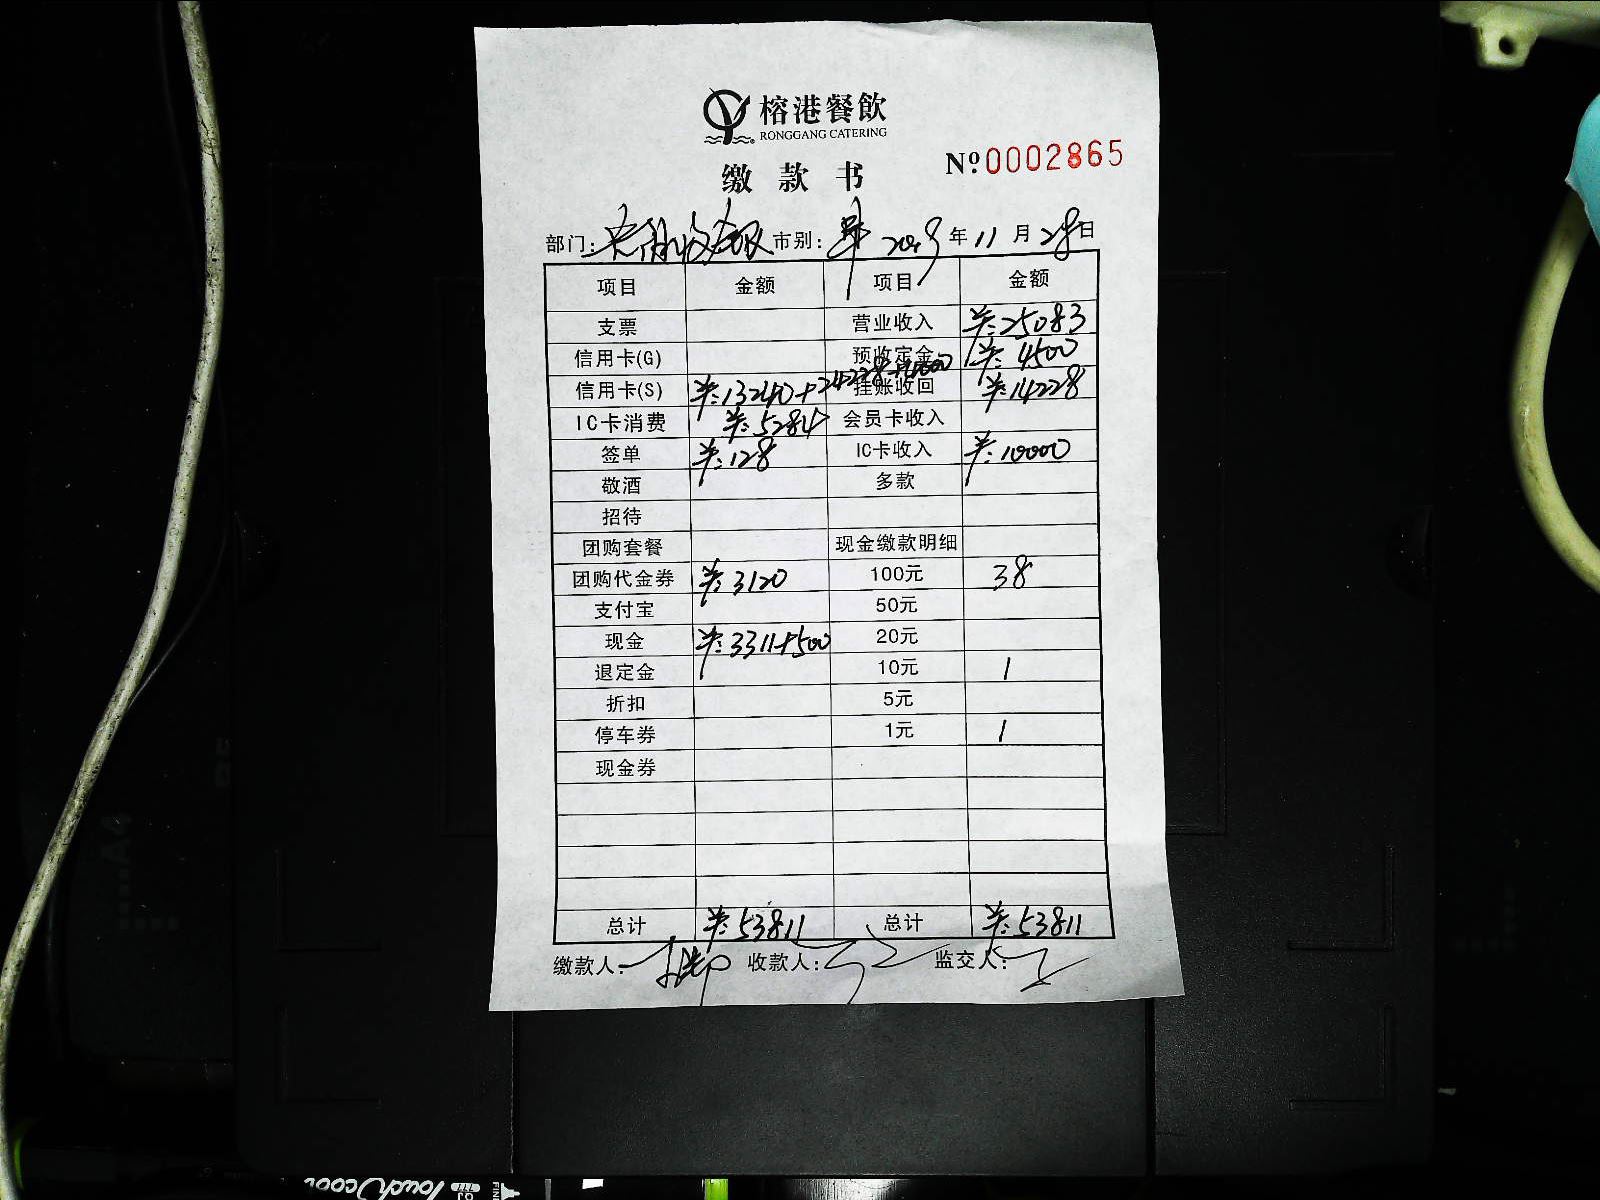 榕港餐飲
RONGGANG CATERING
缴款书
Nº0002865
部门: 市别: 2019年11月28日
项目 金额 项目 金额
支票 营业收入 ¥:25083
信用卡(G) 预收定金 ¥:4500
信用卡(S) ¥:13240+24228+4000 挂账收回 ¥:14228
IC卡消费 ¥:5284 会员卡收入
签单 ¥:128 IC卡收入 ¥:10000
敬酒 多款
招待
团购套餐 现金缴款明细
团购代金券 ¥:3120 100元 38
支付宝 50元
现金 ¥:3311+500 20元
退定金 10元 1
折扣 5元
停车券 1元 1
现金券
总计 ¥:53811 总计 ¥:53811
缴款人: 收款人: 监交人:
Touch cool